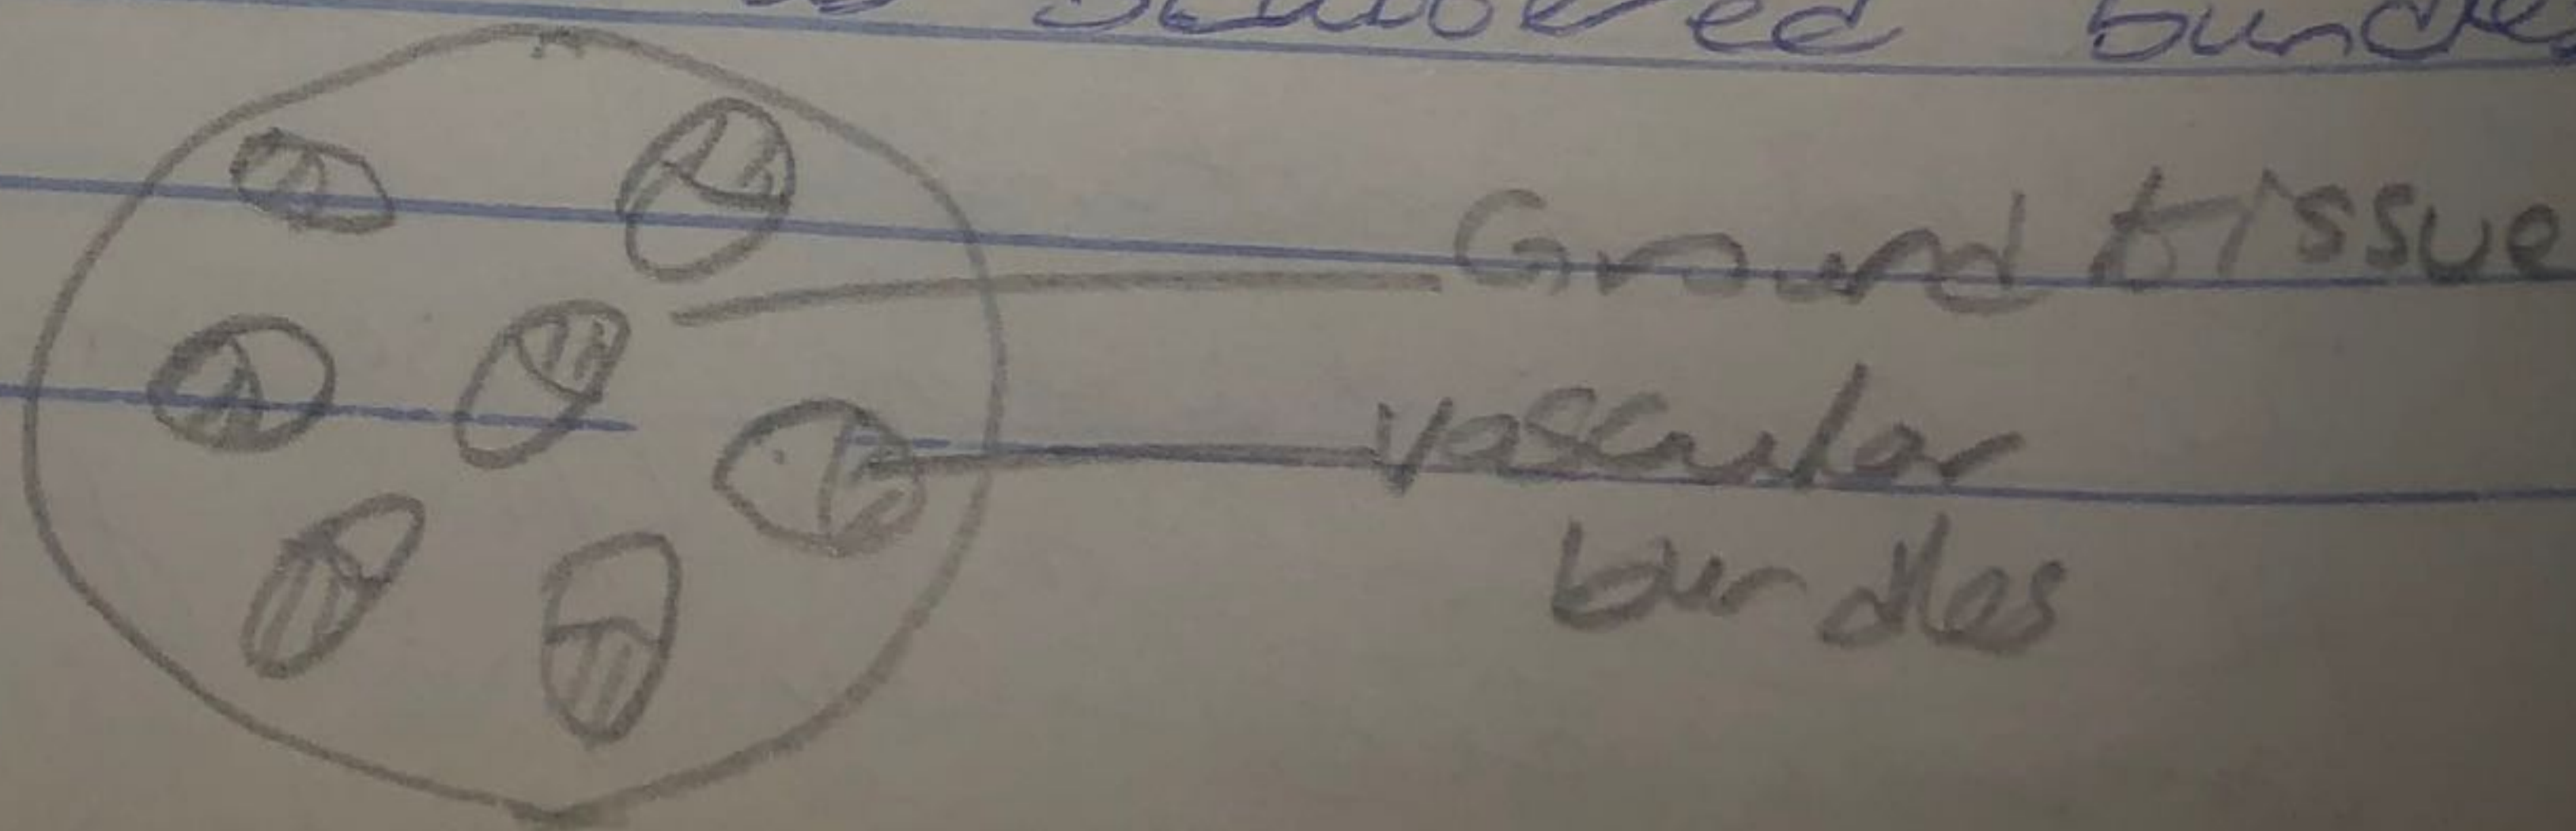 scattered bundles
Ground tissue
vascular
bundles